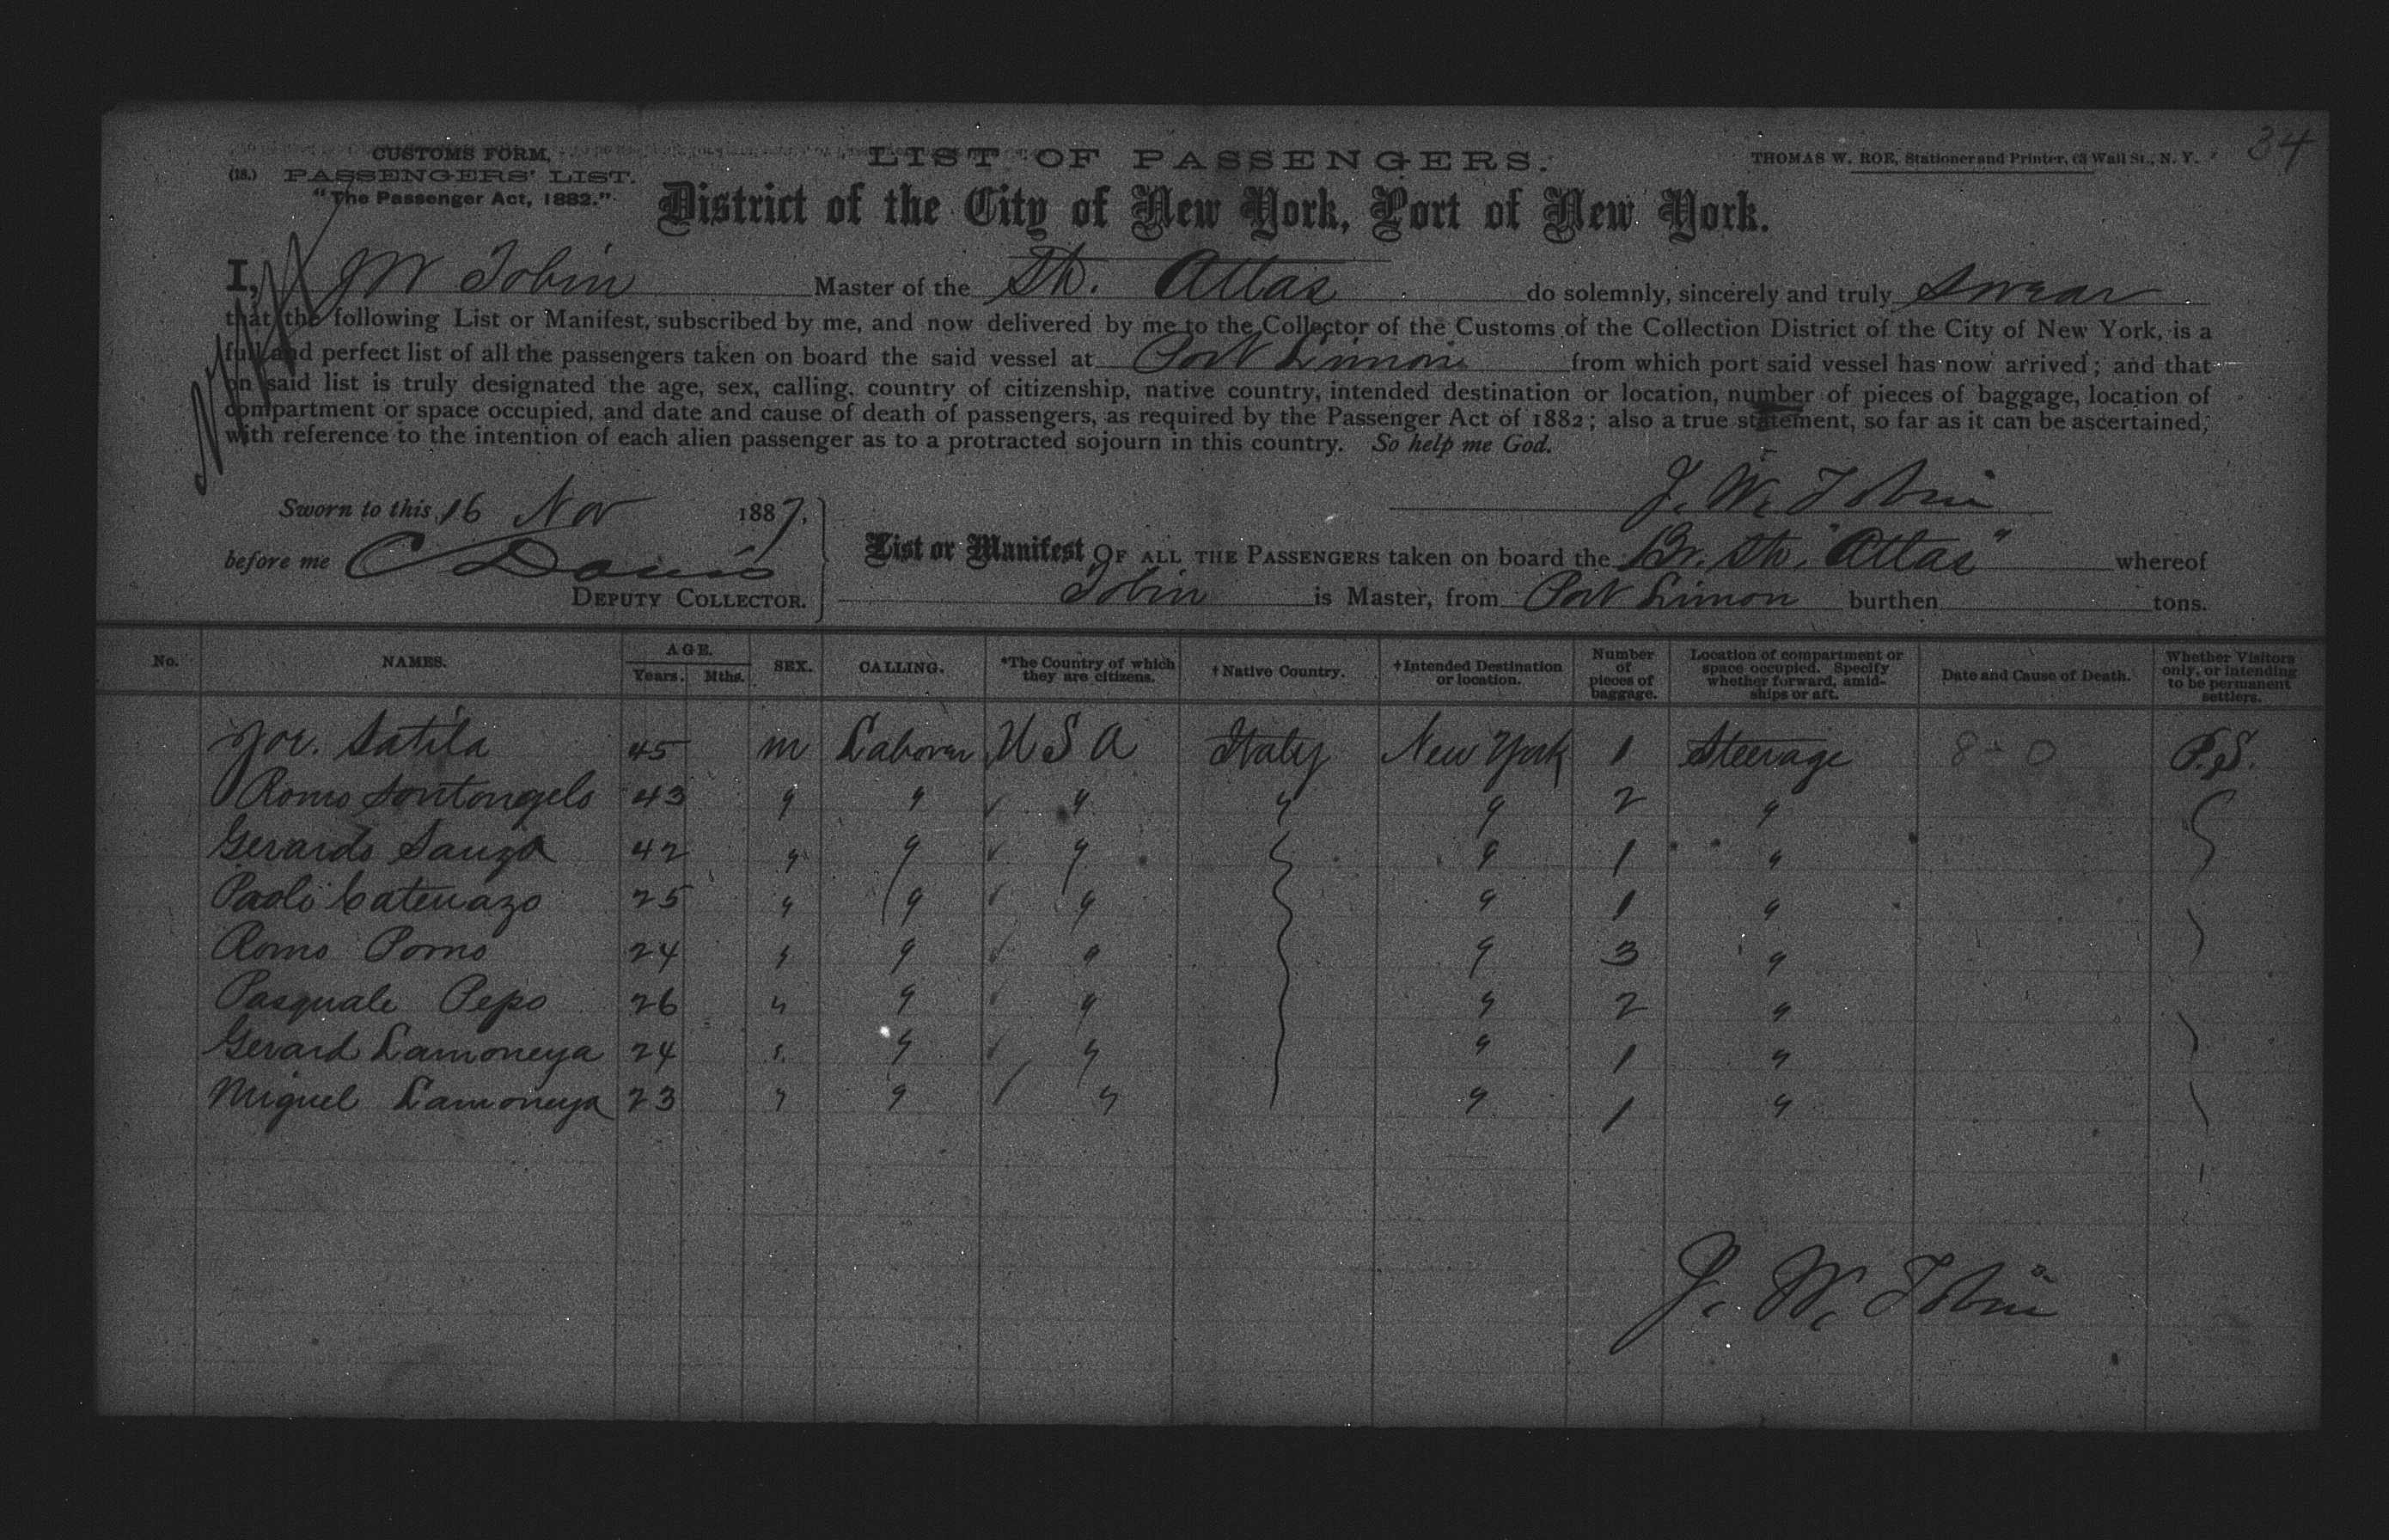 34
CUSTOMS FORM,
(18.) PASSENGERS' LIST.
"The Passenger Act, 1882."
LIST OF PASSENGERS.
THOMAS W. ROE, Stationer and Printer, 63 Wall St., N. Y.
District of the City of New York, Port of New York.
I, J W Tobin Master of the Str. Atlas do solemnly, sincerely and truly swear
that the following List or Manifest, subscribed by me, and now delivered by me to the Collector of the Customs of the Collection District of the City of New York, is a
full and perfect list of all the passengers taken on board the said vessel at Port Limon from which port said vessel has now arrived; and that
on said list is truly designated the age, sex, calling, country of citizenship, native country, intended destination or location, number of pieces of baggage, location of
compartment or space occupied, and date and cause of death of passengers, as required by the Passenger Act of 1882; also a true statement, so far as it can be ascertained,
with reference to the intention of each alien passenger as to a protracted sojourn in this country. So help me God.
J. W. Tobin
Sworn to this 16 Nov 1887.
before me C Davis
DEPUTY COLLECTOR.
List or Manifest OF ALL THE PASSENGERS taken on board the Br. Str. "Atlas" whereof
Tobin is Master, from Port Limon burthen tons.
No. NAMES. AGE. Years. Mths. SEX. CALLING. *The Country of which they are citizens. †Native Country. †Intended Destination or location. Number of pieces of baggage. Location of compartment or space occupied. Specify whether forward, amidships or aft. Date and Cause of Death. Whether Visitors only, or intending to be permanent settlers.
Satila 45 m Laborer U S A Italy New York 1 Steerage 8 - 0 P.S.
Romo Sontongelo 43 " " " " " 2 "
Gerardo Sauza 42 " " " " 1 "
Paolo Catenazo 25 " " " " 1 "
Romo Pomo 24 " " " " 3 "
Pasquale Pepo 26 " " " " 2 "
Gerard Lamoneya 24 " " " " 1 "
Miguel Lamoneya 23 " " " " 1 "
J. W. Tobin